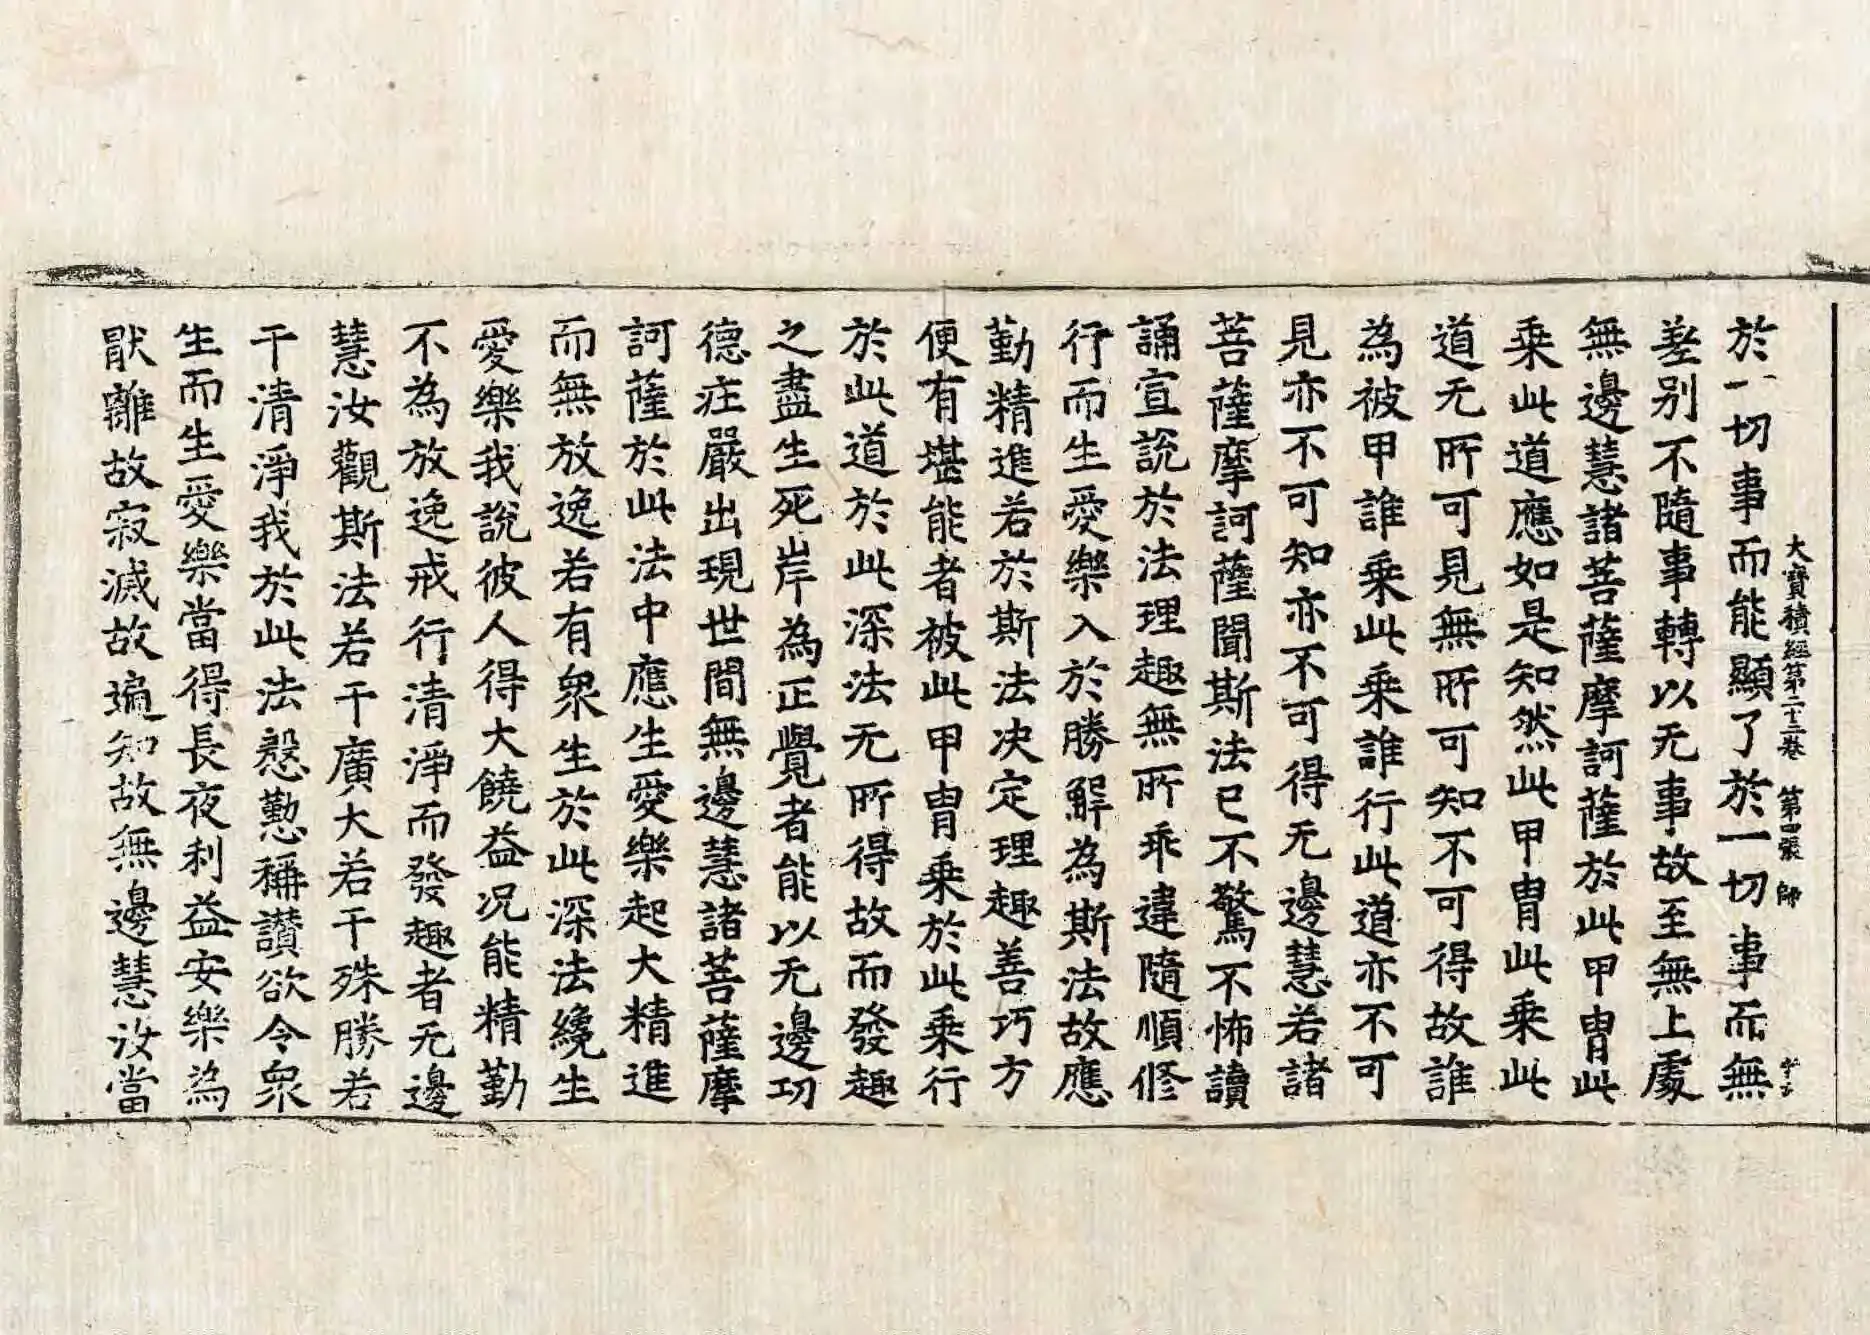 大寶積經第二十三卷 第四張 師
於一切事而能顯了於一切事而無
差别不隨事轉以无事故至無上處
無邊慧諸菩薩摩訶薩於此甲冑此
乘此道應如是知然此甲冑此乘此
道无所可見無所可知不可得故誰
為被甲誰乘此乘誰行此道亦不可
見亦不可知亦不可得无邊慧若諸
菩薩摩訶薩聞斯法已不驚不怖讀
誦宣說於法理趣無所乖違隨順修
行而生愛樂入於勝解為斯法故應
勤精進若於斯法决定理趣善巧方
便有堪能者被此甲冑乘於此乘行
於此道於此深法无所得故而發趣
之盡生死岸為正覺者能以无邊功
德庄嚴出現世間無邊慧諸菩薩摩
訶薩於此法中應生愛樂起大精進
而無放逸若有衆生於此深法纔生
愛樂我說彼人得大饒益况能精勤
不為放逸戒行清淨而發趣者无邊
慧汝觀斯法若干廣大若干殊勝若
干清淨我於此法慇懃稱讃欲令衆
生而生愛樂當得長夜利益安樂為
猒離故寂滅故遍知故無邊慧汝當